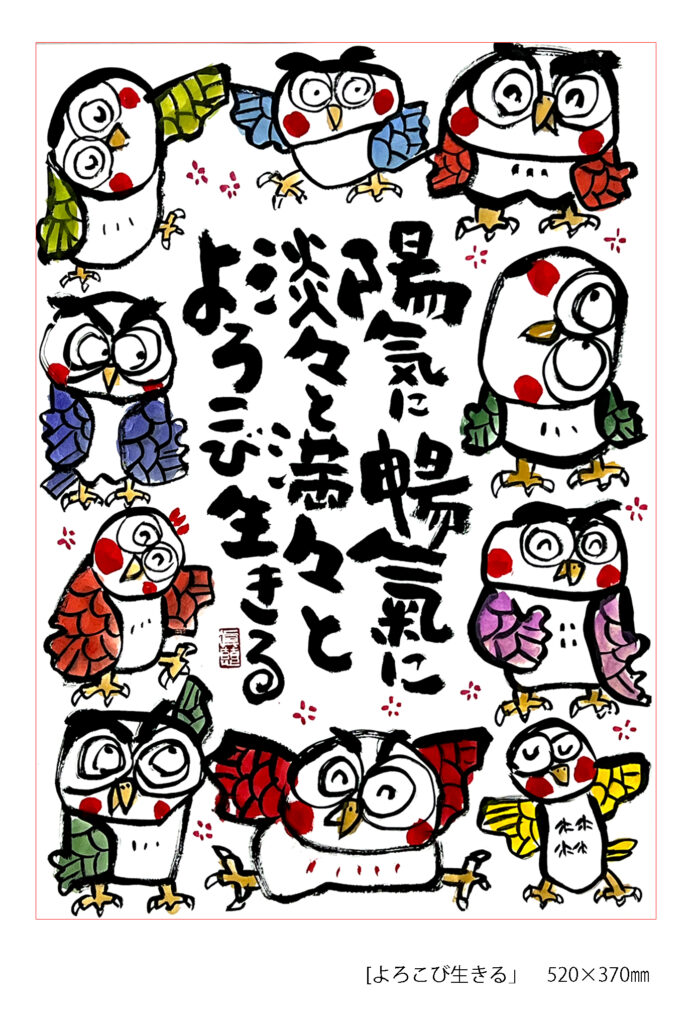 陽気に暢氣に
淡々と満々と
よろこび生きる
[よろこび生きる」 520×370㎜